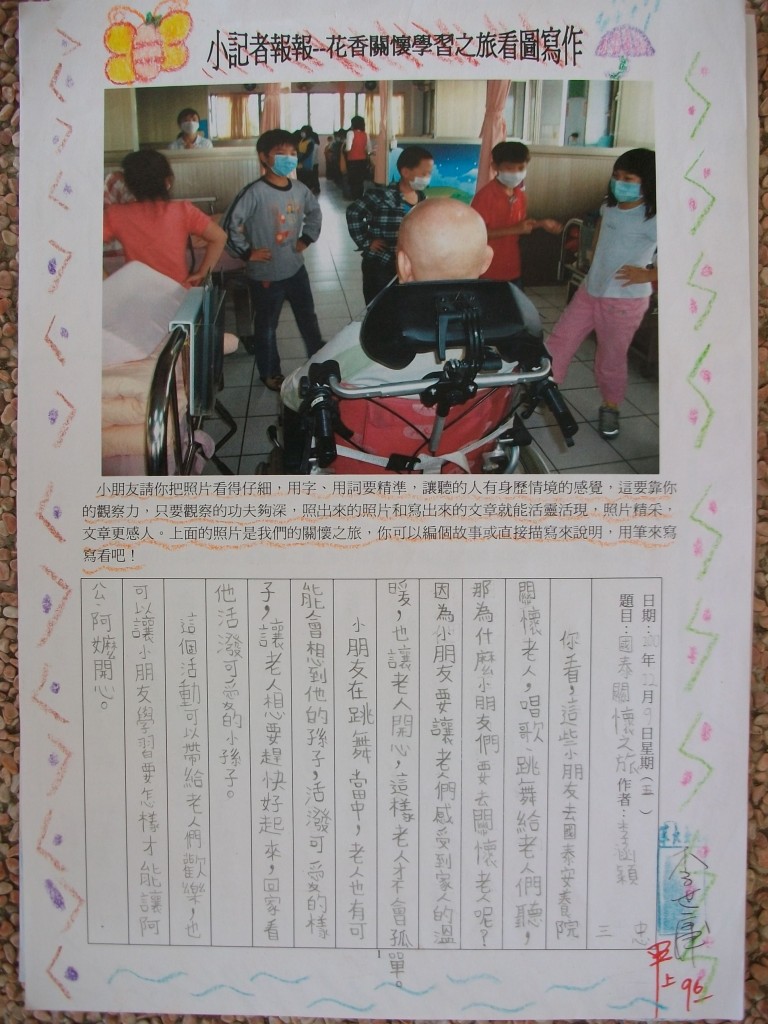 小記者報報--花香關懷學習之旅看圖寫作
小朋友請你把照片看得仔細，用字、用詞要精準，讓聽的人有身歷情境的感覺，這要靠你
的觀察力，只要觀察的功夫夠深，照出來的照片和寫出來的文章就能活靈活現，照片精采，
文章更感人。上面的照片是我們的關懷之旅，你可以編個故事或直接描寫來說明，用筆來寫
寫看吧！
日期：年12月9日星期（五）
題目：國泰關懷之旅 作者：李涵穎
三忠
你看，這些小朋友去國泰安養院
關懷老人，唱歌、跳舞給老人們聽，
那為什麼小朋友們要去關懷老人呢？
因為小朋友要讓老人們感受到家人的溫
暖，也讓老人開心，這樣老人才不會孤單。
小朋友在跳舞當中，老人也有可
能會想到他的孫子，活潑可愛的樣
子，讓老人想要趕快好起來，回家看
他活潑可愛的小孫子。
這個活動可以帶給老人們歡樂，也
可以讓小朋友學習要怎樣才能讓阿
公、阿嬤開心。
甲上
96